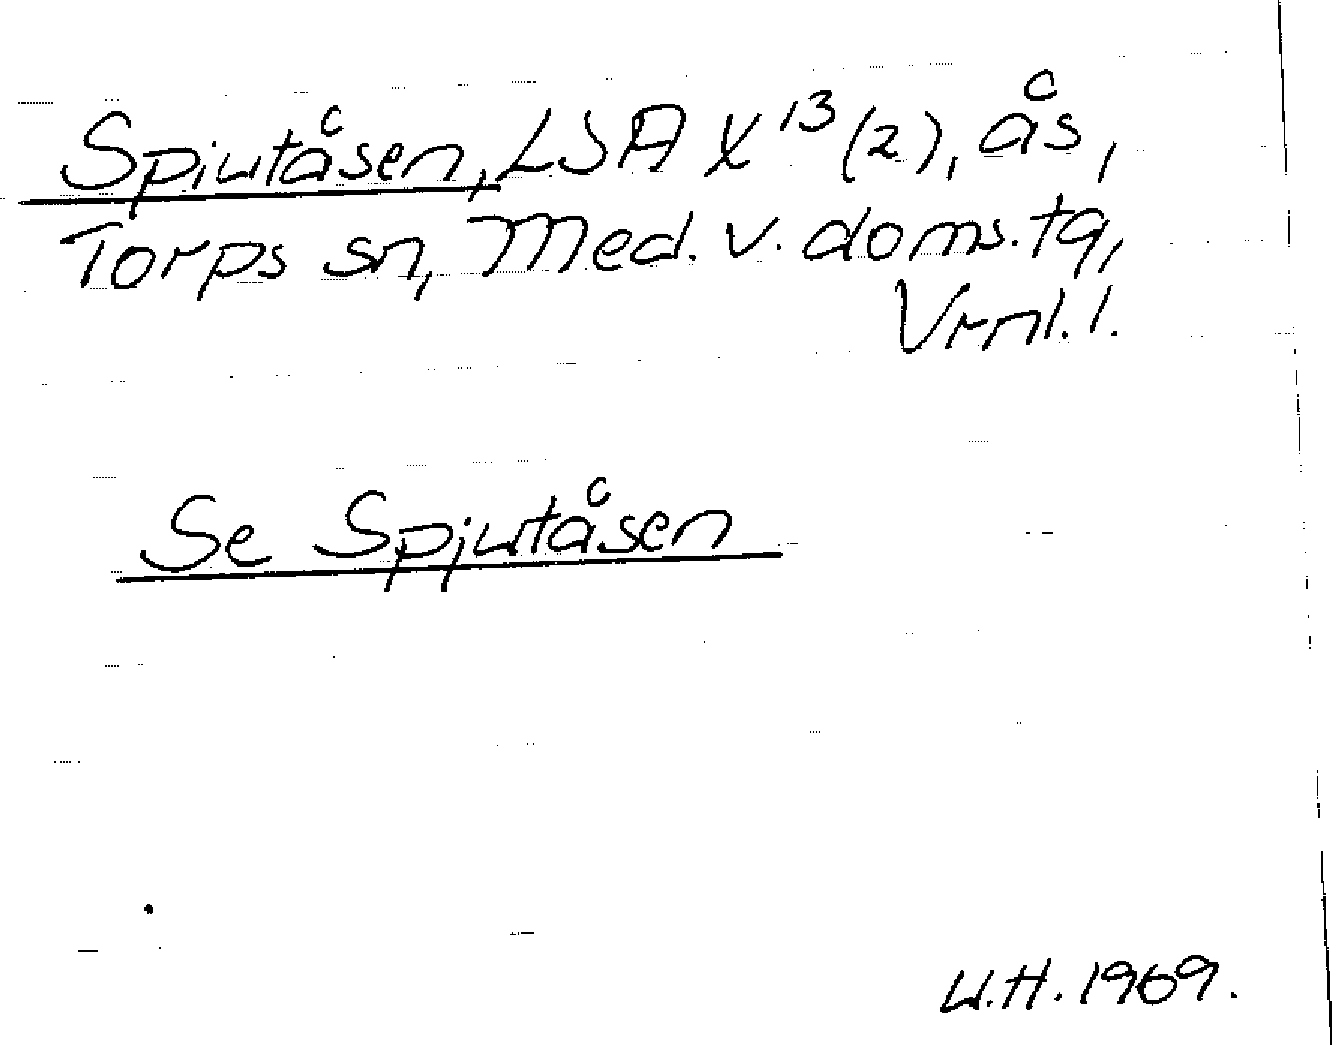 Spiutåsen, LSA X 13 (2), ås,
Torps sn, Med. v. doms.tg,
Vrnl. l.
Se Spjutåsen
U.H. 1969.